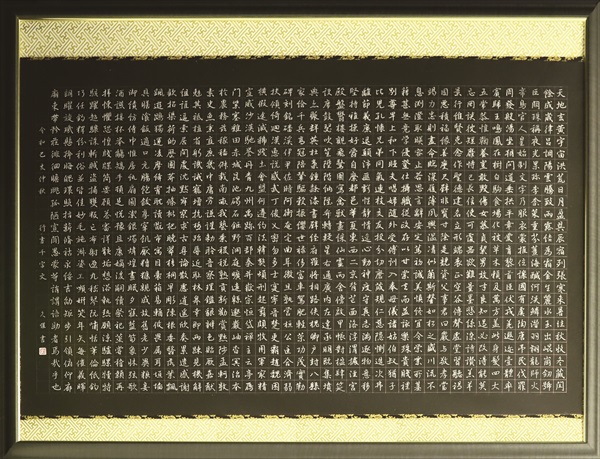 天地玄黄宇宙洪荒日月盈昃辰宿列張寒来暑往秋收冬蔵閏
餘成歳律呂調陽雲騰致雨露結為霜金生麗水玉出崑岡劔號
巨闕珠稱夜光果珍李柰菜重芥薑海鹹河淡鱗潛羽翔龍師火
帝鳥官人皇始制文字乃服衣裳推位讓國有虞陶唐弔民伐罪
周發殷湯坐朝問道垂拱平章愛育黎首臣伏戎羌遐邇壹體率
賓歸王鳴鳳在樹白駒食場化被草木頼及萬方蓋此身髪四大
五常恭惟鞠養豈敢毀傷女慕貞潔男效才良知過必改得能莫
忘罔談彼短靡恃己長信使可覆器欲難量墨悲絲染詩讃羔羊
景行維賢克念作聖徳建名立形端表正空谷傳聲虛堂習聽禍
因惡積福縁善慶尺璧非寶寸陰是競資父事君曰嚴與敬孝當
竭力忠則盡命臨深履薄夙興温凊似蘭斯馨如松之盛川流不
息淵澄取映容止若思言辭安定篤初誠美慎終宜令榮業所基
籍甚無竟學優登仕攝職從政存以甘棠去而益詠樂殊貴賤禮
別尊卑上和下睦夫唱婦隨外受傅訓入奉母儀諸姑伯叔猶子
比兒孔懷兄弟同氣連枝交友投分切磨箴規仁慈隠惻造次弗
離節義廉退顛沛匪虧性靜情逸心動神疲守真志滿逐物意移
堅持雅操好爵自縻都邑華夏東西二京背芒面洛浮渭據涇宮
殿盤鬱樓觀飛驚圖寫禽獸畫綵仙靈丙舍傍啓甲帳對楹肆筵
設席鼓瑟吹笙升階納陛弁轉疑星右通廣内左達承明既集墳
典亦聚群英杜稾鍾隸漆書壁經府羅將相路俠槐卿戸封八縣
家給千兵高冠陪輦驅轂振纓世祿侈富車駕肥輕策功茂實勒
碑刻銘磻溪伊尹佐時阿衡奄宅曲阜微旦孰營桓公匡合濟弱
扶傾綺迴漢惠説感武丁俊乂密勿多士寔寧晉楚更霸趙魏困
横假途滅虢踐土會盟何遵約法韓弊煩刑起翦頗牧用軍最精
宣威沙漠馳譽丹青九州禹跡百郡秦并嶽宗恒岱禪主云亭雁
門紫塞鷄田赤城昆池碣石鉅野洞庭曠遠緜邈巖岫杳冥治本
於農務茲稼穡俶載南畝我藝黍稷税熟貢新勸賞黜陟孟軻敦
素史魚秉直庶幾中庸勞謙謹敕聆音察理鑑貌辨色貽厥嘉猷
勉其祗植省躬譏誡寵增抗極殆辱近恥林皋幸即兩疏見機解
組誰逼索居閑處沈默寂寥求古尋論散慮逍遙欣奏累遣慼謝
歡招渠荷的歷園莽抽條枇杷晩翠梧桐早凋陳根委翳落葉飄
颻遊鵾獨運凌摩絳霄耽讀翫市寓目囊箱易輶攸畏屬耳垣牆
具膳飡飯適口充腸飽飫烹宰飢厭糟糠親戚故舊老少異糧妾
御績紡侍巾帷房紈扇圓潔銀燭煒煌晝眠夕寐藍筍象牀絃歌
酒讌接杯舉觴矯手頓足悦豫且康嫡後嗣續祭祀蒸嘗稽顙再
拜悚懼恐惶牋牒簡要顧答審詳骸垢想浴執熱願涼驢騾犢特
駭躍超驤誅斬賊盜捕獲叛亡布射遼丸嵇琴阮嘯恬筆倫紙鈞
巧任釣釋紛利俗竝皆佳妙毛施淑姿工顰妍笑年矢毎催曦暉
朗曜旋璣懸斡晦魄環照指薪修祜永綏吉劭矩步引領俯仰廊
廟束帶矜莊徘徊瞻眺孤陋寡聞愚蒙等誚謂語助者焉哉乎也
令和己亥仲秋 行書千字文 書